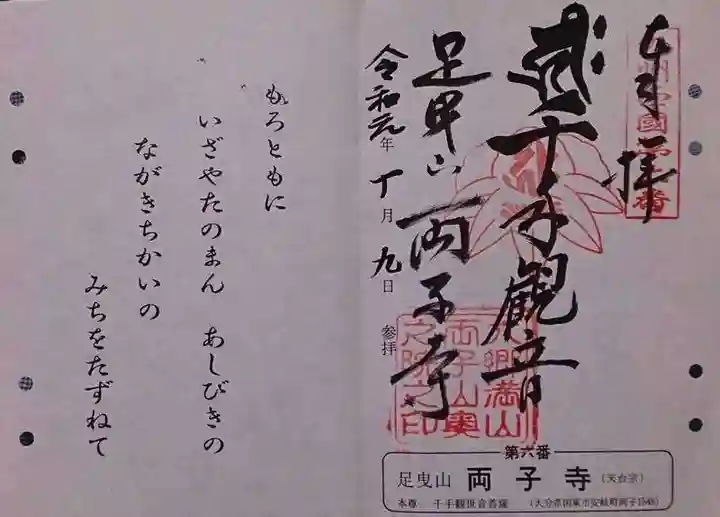 奉拝
千手観音
足曳山 両子寺
令和元年十月九日 参拝
六郷満山
両子山奥
之院之印
第六番
足曳山 両子寺 (天台宗)
本尊 千手観世音菩薩 (大分県国東市安岐町両子1548)
もろともに
いざやたのまん あしびきの
ながきちかいの
みちをたずねて